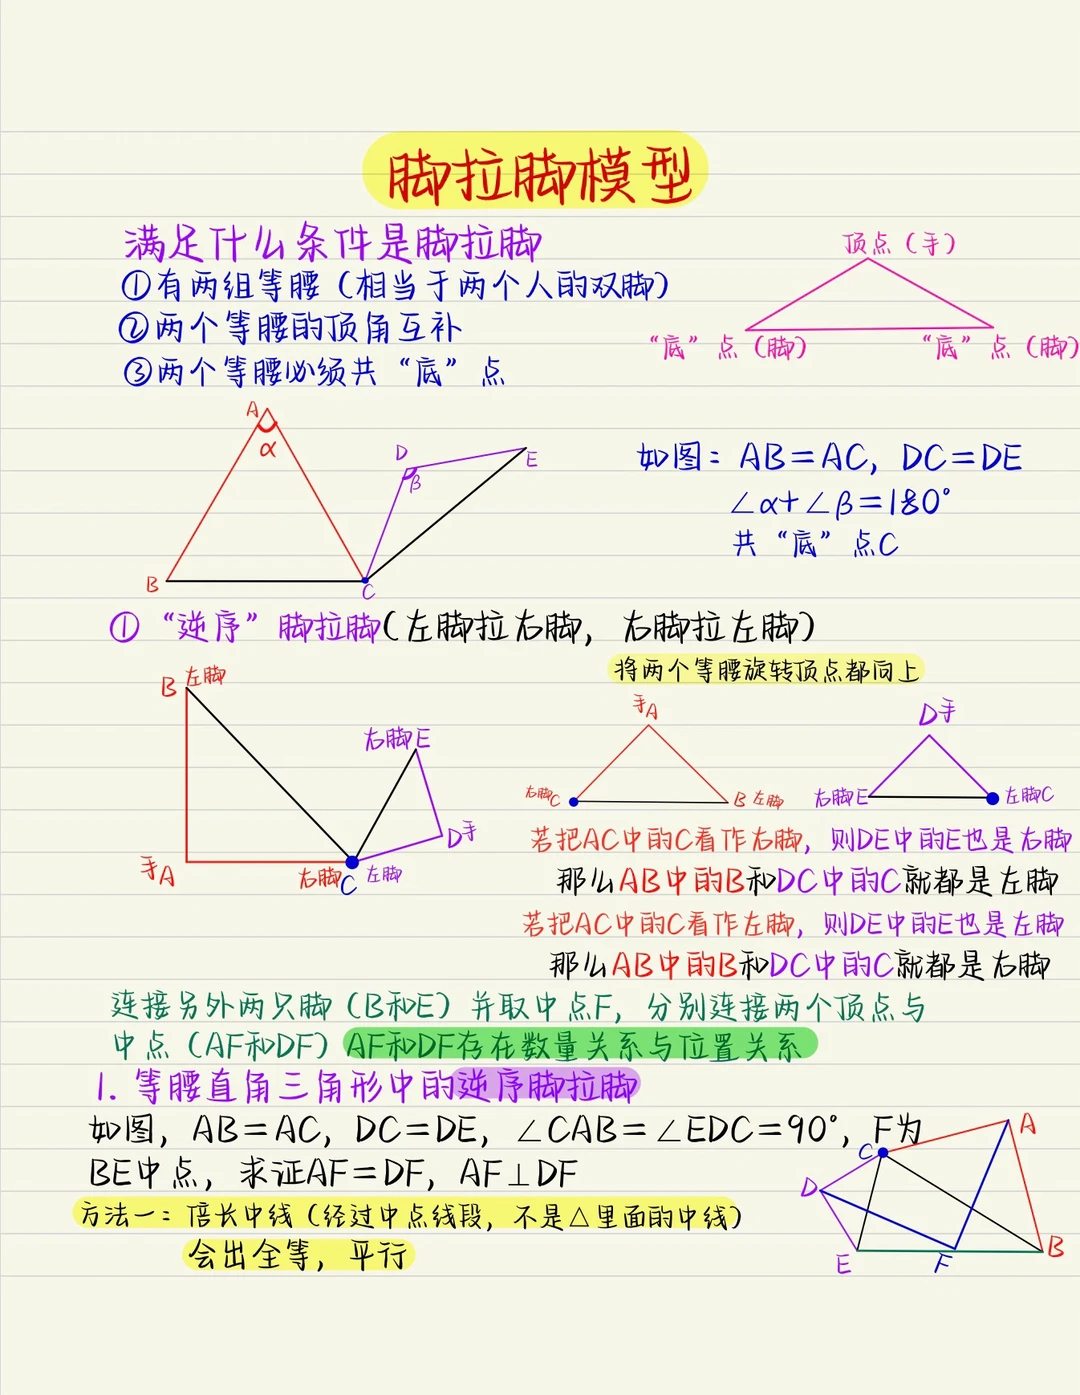 脚拉脚模型
满足什么条件是脚拉脚
①有两组等腰（相当于两个人的双脚）
②两个等腰的顶角互补
③两个等腰必须共“底”点
顶点（手）
“底”点（脚）
“底”点（脚）
A
α
B
C
D
β
E
如图：AB=AC，DC=DE
∠α+∠β=180°
共“底”点C
①“逆序”脚拉脚(左脚拉右脚，右脚拉左脚)
将两个等腰旋转顶点都向上
B 左脚
右脚E
D手
手A
右脚C 左脚
手A
右脚C
B 左脚
D手
右脚E
左脚C
若把AC中的C看作右脚，则DE中的E也是右脚
那么AB中的B和DC中的C就都是左脚
若把AC中的C看作左脚，则DE中的E也是左脚
那么AB中的B和DC中的C就都是右脚
连接另外两只脚（B和E）并取中点F，分别连接两个顶点与
中点（AF和DF）AF和DF存在数量关系与位置关系
1. 等腰直角三角形中的逆序脚拉脚
如图，AB=AC，DC=DE，∠CAB=∠EDC=90°，F为
BE中点，求证AF=DF，AF⊥DF
方法一：倍长中线（经过中点线段，不是△里面的中线）
会出全等，平行
A
C
D
E
F
B